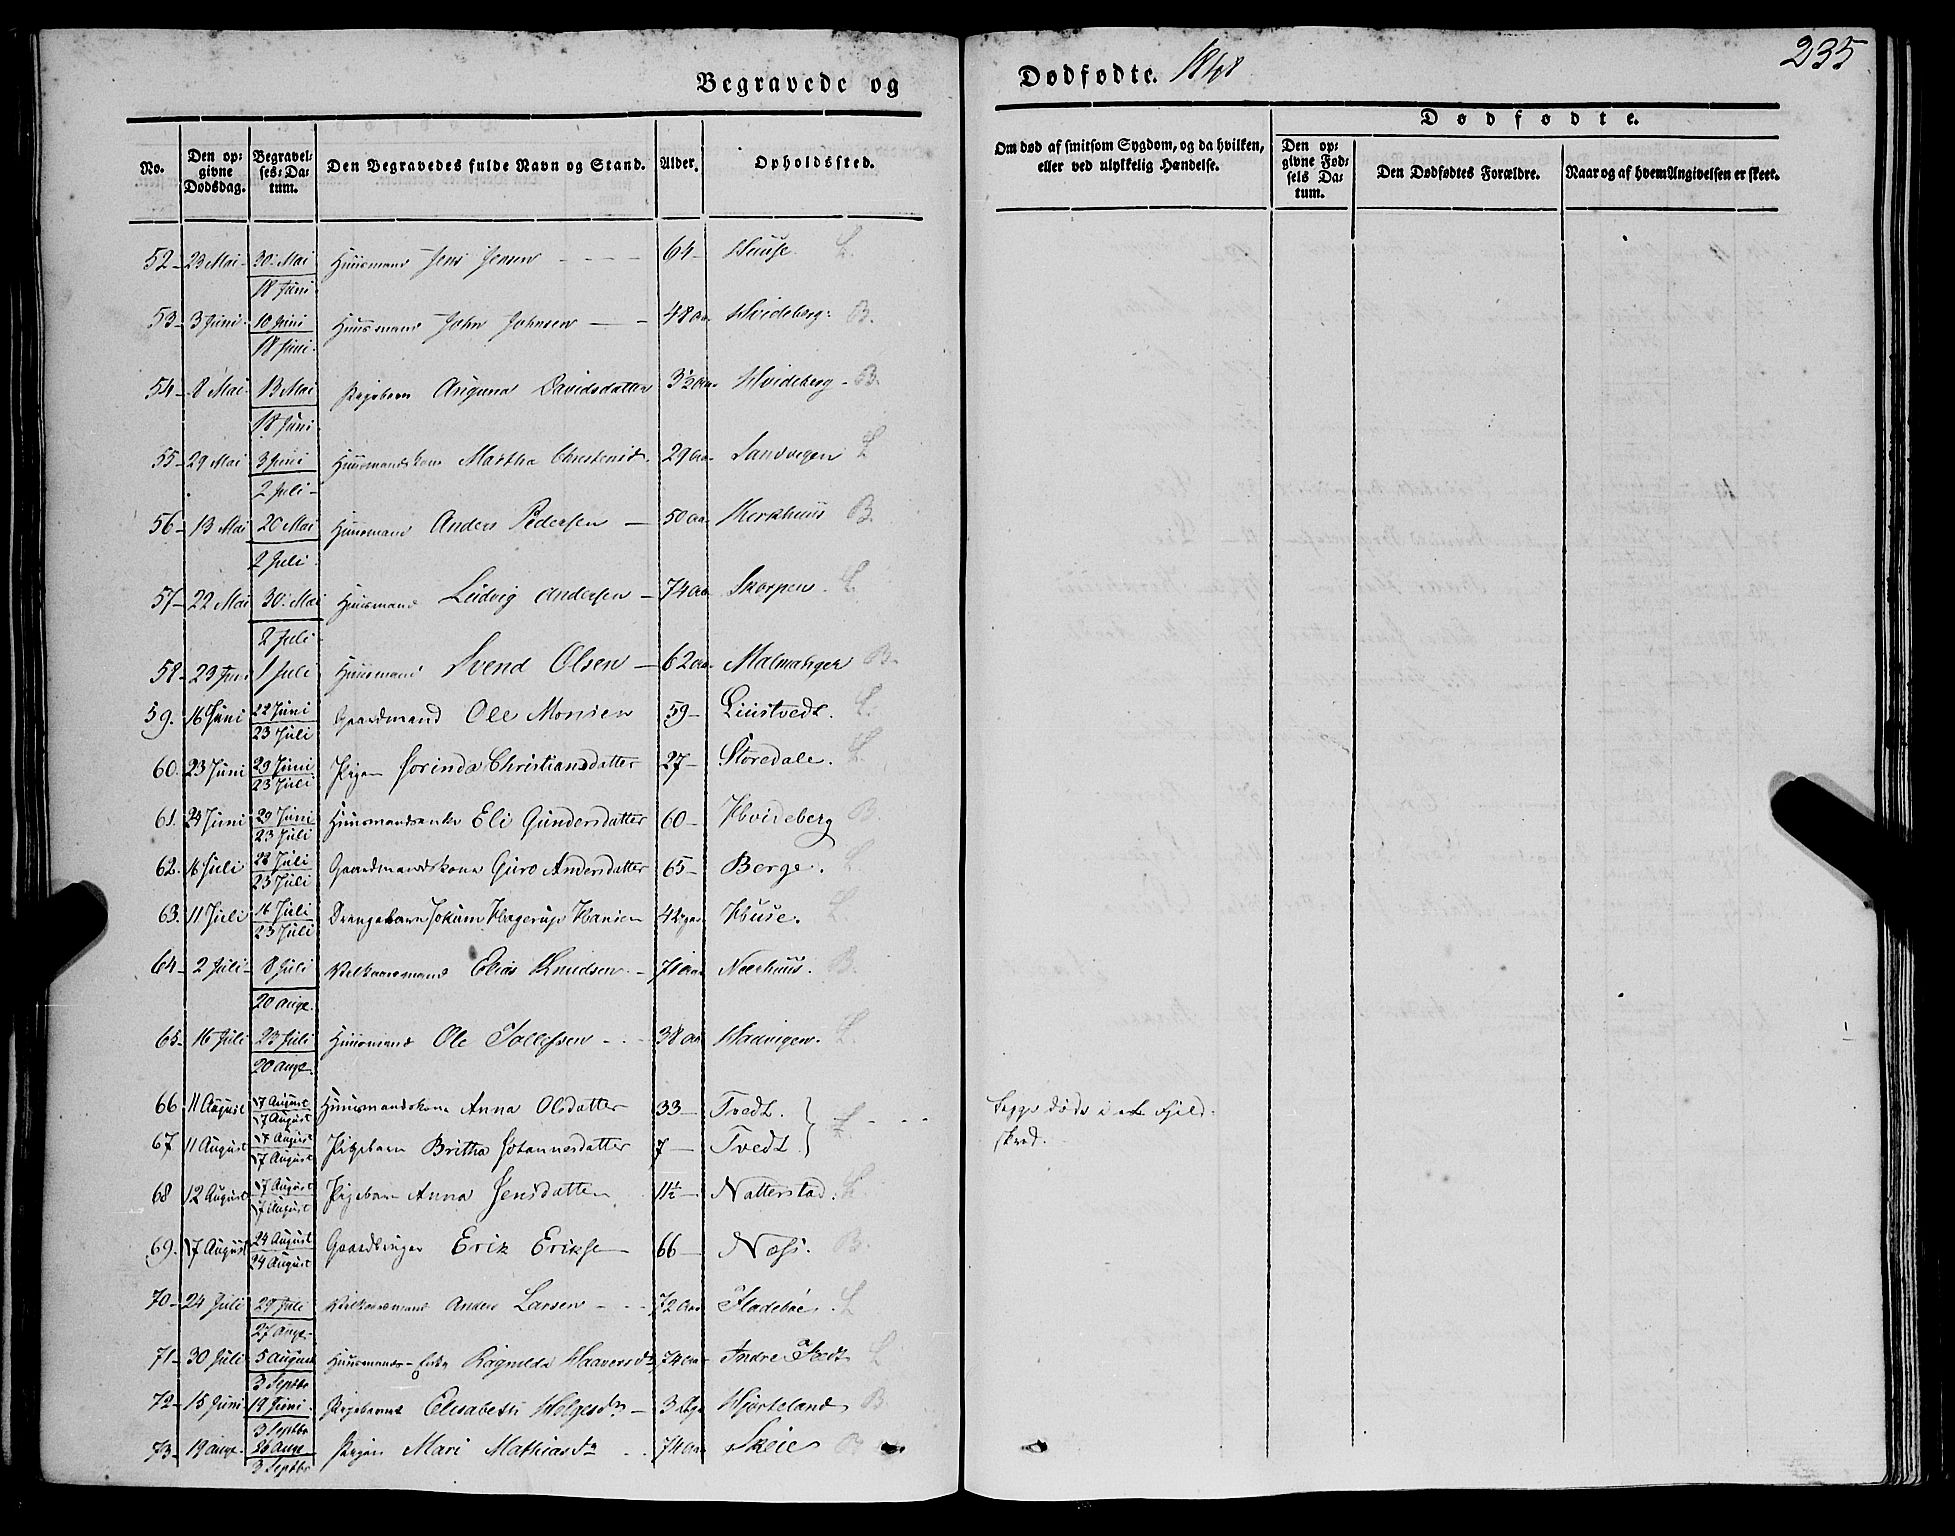 235
Begravede og Dødfødte. 1848
Dødfødte.
No. | Den opgivne Dødsdag. | Begravelses-Datum. | Den Begravedes fulde Navn og Stand. | Alder. | Opholdssted. | Om død af smitsom Sygdom, og da hvilken, eller ved ulykkelig Hændelse. | Den opgivne Fødsels Datum. | Den Dødfødtes Forældre. | Naar og af hvem Angivelsen er skeet.
52 - 23 Mai - 30 Mai / 18 Juni - Huusmand Jens Jensen - 64 - Huuse L.
53 - 3 Juni - 10 Juni / 18 Juni - Huusmand John Johnsen - 48 Aar - Hvideberg B.
54 - 8 Mai - 13 Mai / 18 Juni - Pigebarn Davidsdatter 3½ Aar - Hvideberg - B.
55 - 29 Mai - 3 Juni / 2 Juli - Huusmandskone Martha 29 Aar - Sandvigen L
56 - 13 Mai - 20 Mai / 2 Juli - Huusmand Anders Pedersen - 50 Aar - Kirkhuus B.
57 - 22 Mai - 30 Mai / 2 Juli - Huusmand Ludvig Andersen - 74 Aar - Skorpen L.
58 - 23 Juni - 1 Juli - Huusmand Svend Olsen - 62 Aar - Malmanger B.
59. 16 Juni - 22 Juni / 23 Juli - Gaardmand Ole Monsen - 59 - L.
60. 23 Juni - 29 Juni / 23 Juli - Pigen Sorinda Christiansdatter - 27 - Storedale. L.
61. 24 Juni - 29 Juni / 23 Juli - Huusmandsenke Eli Gundersdatter - 60 - Hvideberg B.
62. 16 Juli - 22 Juli / 23 Juli - Gaardmandskone Guro Andersdatter - 65 - Berge. L.
63. 11 Juli - 16 Juli / 23 Juli - Drengebarn Jokum Hagerup Hansen - Huse. L.
64 - 2 Juli - 8 Juli / 20 Aug. - Vilkaarsmand Elias Knudsen - 71 Aar - Neerhuus. B.
65 - 16 Juli - 23 Juli / 20 Aug. - Huusmand Ole Tollefsen - 38 Aar - L.
66 11 August - 17 August / 17 August - Huusmandskone Anna Olsdatter - 33 - Tvedt. L. Begge døde i et Fjeld-
67 11 August - 17 August / 17 August - Pigebarn Britha Johannesdatter - 7 - Tvedt. skred.
68 12 August - 17 August / 17 August - Pigebarn Anna Jensdatter - 11½ - Natterstad. L
69. 17 August - 24 August / 24 August - Gaardbruger Erik Eriksen - 66 - Næss. B.
70 - 24 Juli - 29 Juli / 27 Aug. - Vilkaarsmand Anders Larsen - 72 Aar L
71 - 30 Juli - 5 August / 3 Septbr - Huusmands-Enke Ragnilda - 74 Aar - Indre L
72 - 15 Juni - 19 Juni / 3 Septbr - Pigebarnet Elisabeth Helgesdr - 3 - Hjorteland B
73 - 19 Aug. - 26 Aug. / 3 Septbr - Pigen Mari Mathiasdr - 74 Aar - Skeie B